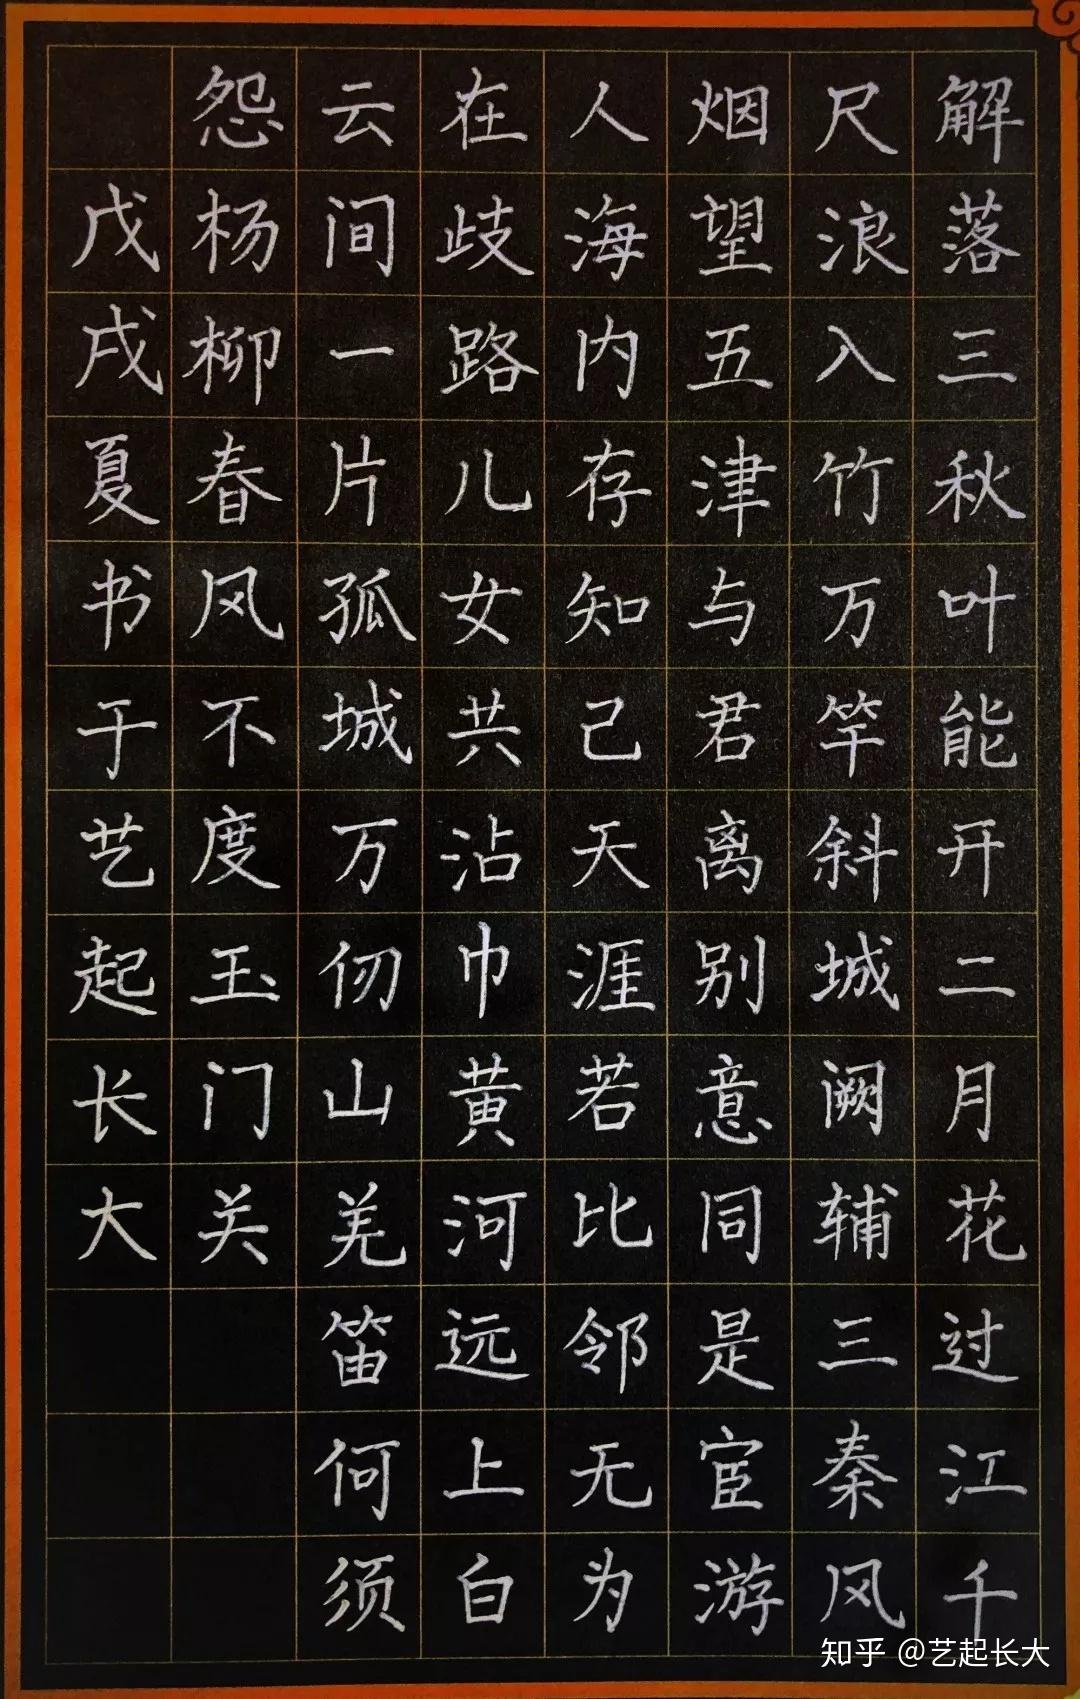 解落三秋叶能开二月花过江千
尺浪入竹万竿斜城阙辅三秦风
烟望五津与君离别意同是宦游
人海内存知己天涯若比邻无为
在歧路儿女共沾巾黄河远上白
云间一片孤城万仞山羌笛何须
怨杨柳春风不度玉门关
戊戌夏书于艺起长大
知乎 @艺起长大